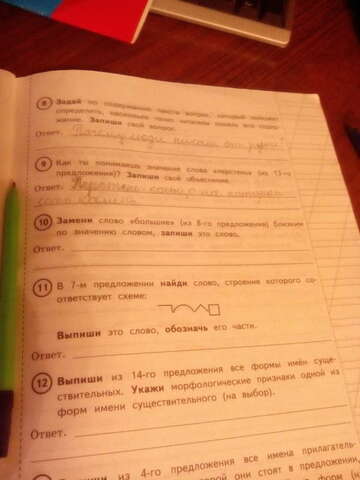 8 Задай по содержанию текста вопрос, который поможет
определить, насколько точно читатели поняли его содер-
жание. Запиши свой вопрос.
Ответ. Почему люди писали от руки?
9 Как ты понимаешь значение слова «перстень» (из 13-го
предложения)? Запиши своё объяснение.
Ответ. Перстень кольцо на
10 Замени слово «большие» (из 8-го предложения) близким
по значению словом, запиши это слово.
Ответ.
11 В 7-м предложении найди слово, строение которого со-
ответствует схеме:
Выпиши это слово, обозначь его части.
Ответ.
12 Выпиши из 14-го предложения все формы имён суще-
ствительных. Укажи морфологические признаки одной из
форм имени существительного (на выбор).
Ответ.
из 4-го предложения все имена прилагатель-
они стоят в предложении,
форм